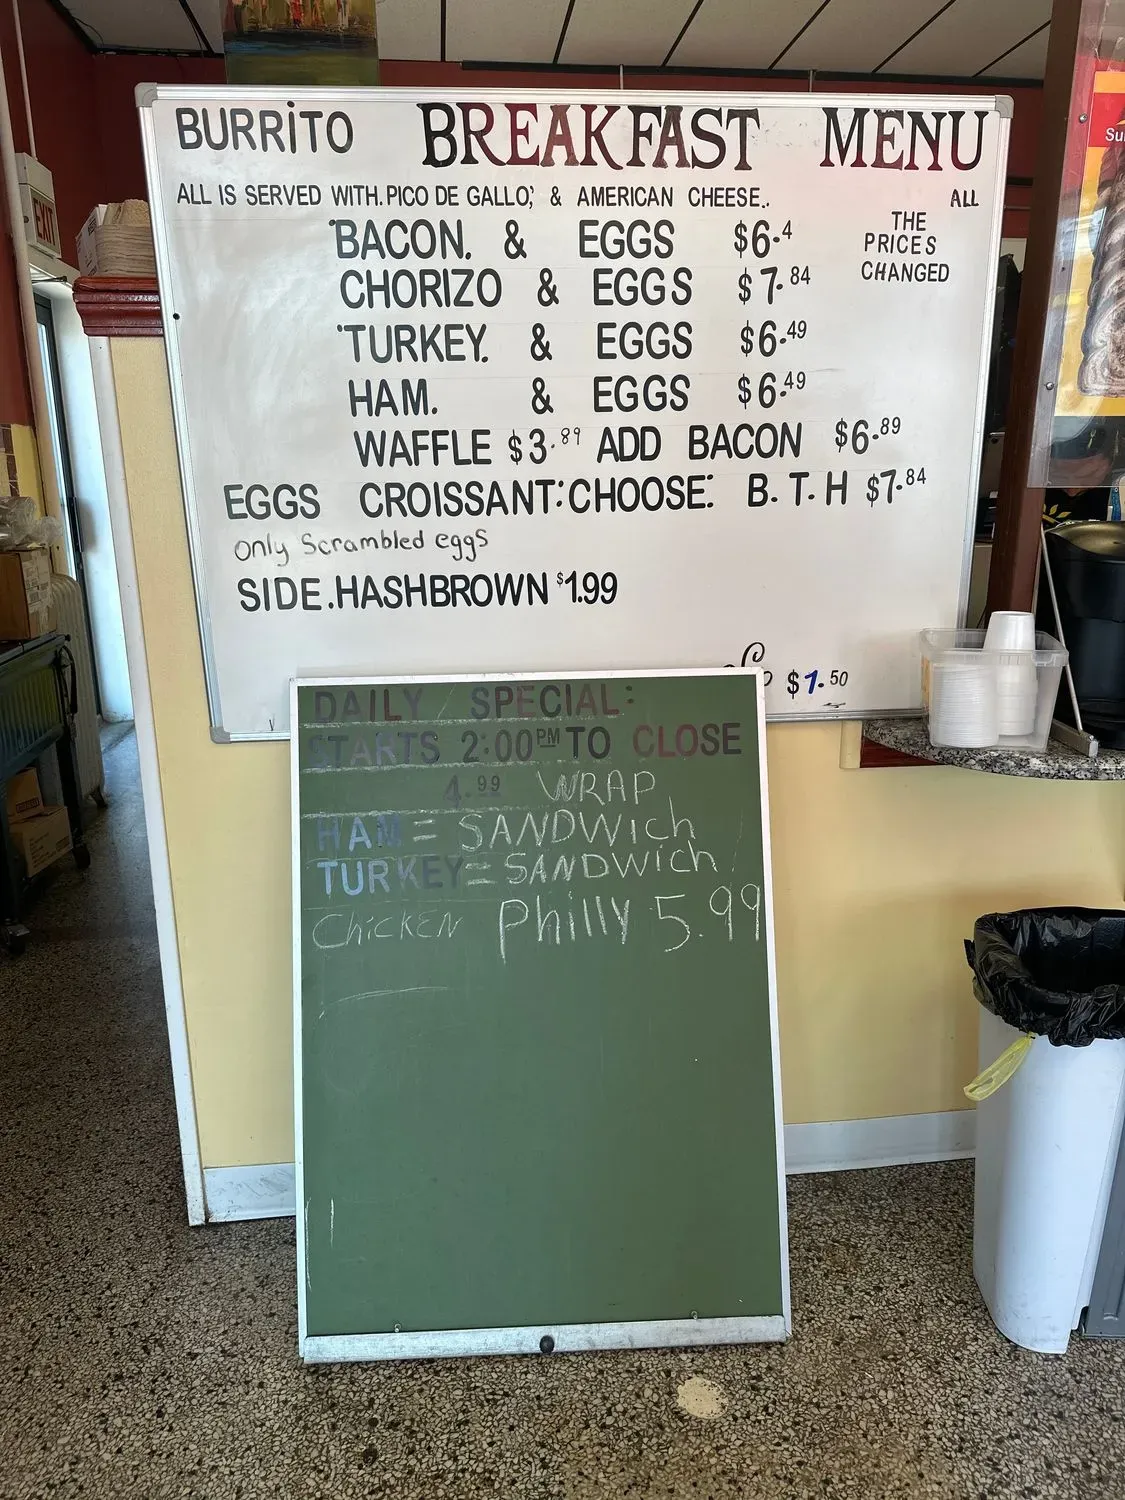 BURRiTO BREAKFAST MENU
ALL IS SERVED WITH.PICO DE GALLO,' & AMERICAN CHEESE..
ALL
THE
PRICES
CHANGED
BACON. & EGGS $6.4
CHORIZO & EGGS $7.84
TURKEY. & EGGS $6.49
HAM. & EGGS $6.49
WAFFLE $3.89 ADD BACON $6.89
EGGS CROISSANT: CHOOSE: B. T. H $7.84
only Scrambled eggs
SIDE.HASHBROWN $1.99
$1.50
DAILY SPECIAL:
STARTS 2:00PM TO CLOSE
4.99 WRAP
HAM = SANDWich
TURKEY = SANDWich
CHicKEN Philly 5.99
EXIT
Su